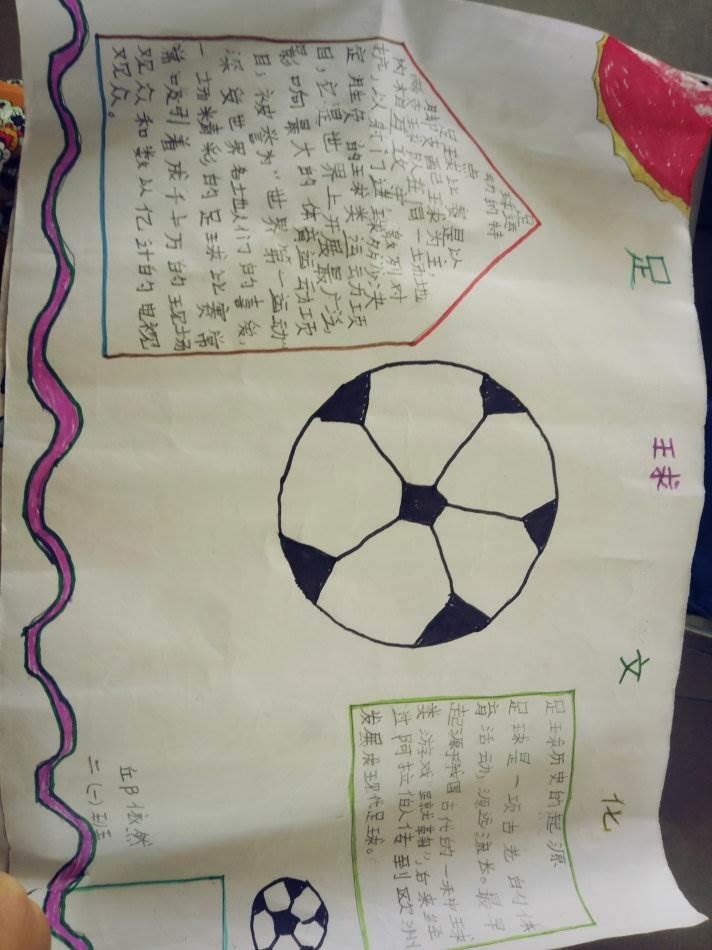 足球文化
足球运
动的特
点
足球比赛是以
脚支配球为主,
两支球队在同一场地
内相互攻守、激烈对
抗,以射门进球多少决
定胜负的球类运动项
目,它是世界上开展最广泛,
影响最大的体育运动项
目,被誉为“世界第一运动”
深受世界各地人们的喜爱,
一场精彩的足球比赛常
常吸引着成千上万的现场
观众和数以亿计的电视
观众。
足球历史的起源
足球是一项古老的体
育活动,源远流长。最早
起源于我国古代的一种球
类游戏“蹴鞠”,后来经
过阿拉伯人传到欧洲
发展成现代足球。
邱依然
二(一)班